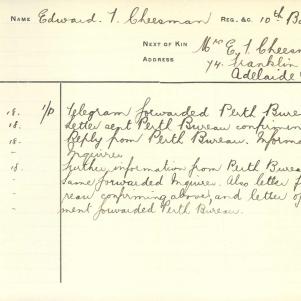 NAME Edward. T Cheesman REG. &C. 10th Ba
NEXT OF KIN Mrs E. T Cheesm
ADDRESS 74. Franklin
Adelaide
18. I/P Telegram forwarded Perth Bure
18. Letter sent Perth Bureau confirmin
18. Reply from Perth Bureau. Informe
- Inquirer
18. Further information from Perth Burea
- Same forwarded Inquirer. Also letter f
- reau confirming above, and letter of
ment forwarded Perth Bureau.